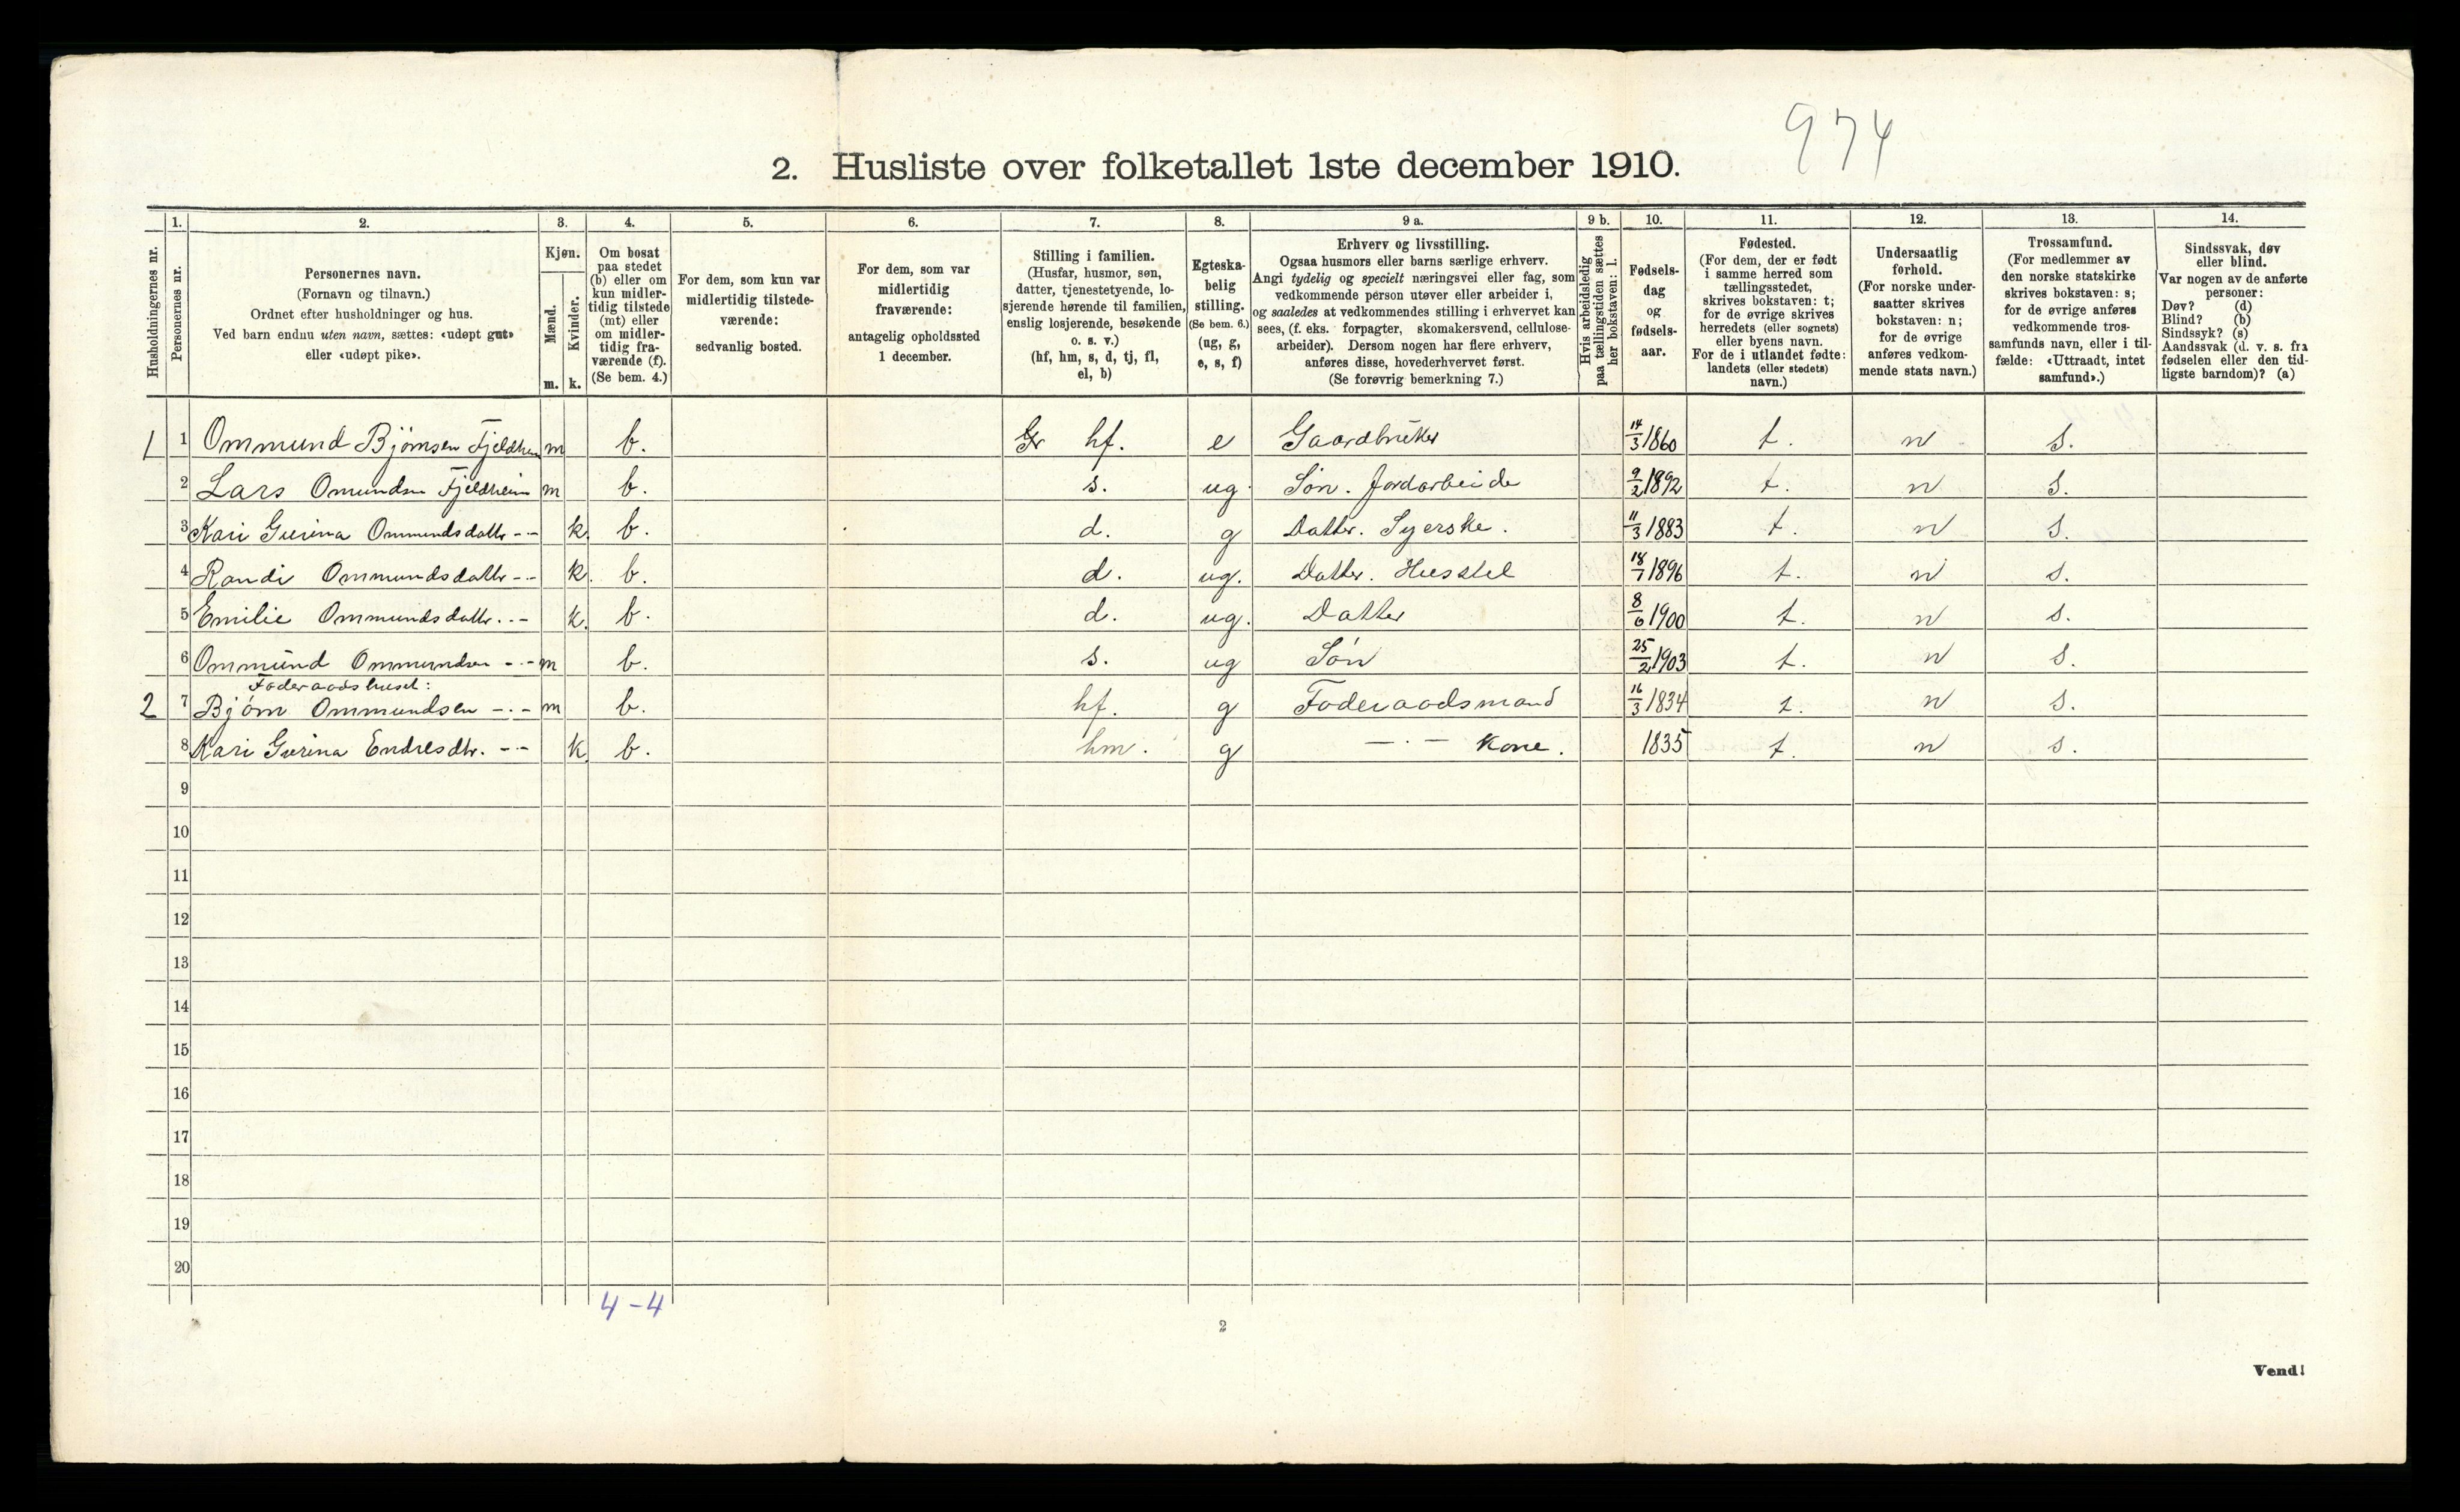 974
2. Husliste over folketallet 1ste december 1910.
Husholdningernes nr.
1.
Personernes nr.
2.
Personernes navn.
(Fornavn og tilnavn.)
Ordnet efter husholdninger og hus.
Ved barn endnu uten navn, sættes: «udøpt gut»
eller «udøpt pike».
3.
Kjøn.
Mænd.
Kvinder.
m. k.
4.
Om bosat
paa stedet
(b) eller om
kun midler-
tidig tilstede
(mt) eller
om midler-
tidig fra-
værende (f).
(Se bem. 4.)
5.
For dem, som kun var
midlertidig tilstede-
værende:
sedvanlig bosted.
6.
For dem, som var
midlertidig
fraværende:
antagelig opholdssted
1 december.
7.
Stilling i familien.
(Husfar, husmor, søn,
datter, tjenestetyende, lo-
sjerende hørende til familien,
enslig losjerende, besøkende
o. s. v.)
(hf, hm, s, d, tj, fl,
el, b)
8.
Egteska-
belig
stilling.
(Se bem. 6.)
(ug, g,
e, s, f)
9 a.
Erhverv og livsstilling.
Ogsaa husmors eller barns særlige erhverv.
Angi tydelig og specielt næringsvei eller fag, som
vedkommende person utøver eller arbeider i,
og saaledes at vedkommendes stilling i erhvervet kan
sees, (f. eks. forpagter, skomakersvend, cellulose-
arbeider). Dersom nogen har flere erhverv,
anføres disse, hovederhvervet først.
(Se forøvrig bemerkning 7.)
9 b.
Hvis arbeidsledig
paa tællingstiden sættes
her bokstaven: l.
10.
Fødsels-
dag
og
fødsels-
aar.
11.
Fødested.
(For dem, der er født
i samme herred som
tællingsstedet,
skrives bokstaven: t;
for de øvrige skrives
herredets (eller sognets)
eller byens navn.
For de i utlandet fødte:
landets (eller stedets)
navn.)
12.
Undersaatlig
forhold.
(For norske under-
saatter skrives
bokstaven: n;
for de øvrige
anføres vedkom-
mende stats navn.)
13.
Trossamfund.
(For medlemmer av
den norske statskirke
skrives bokstaven: s;
for de øvrige anføres
vedkommende tros-
samfunds navn, eller i til-
fælde: «Uttraadt, intet
samfund».)
14.
Sindssvak, døv
eller blind.
Var nogen av de anførte
personer:
Døv? (d)
Blind? (b)
Sindssyk? (s)
Aandssvak (d. v. s. fra
fødselen eller den tid-
ligste barndom)? (a)
1 1 Ommund Bjørnsen Fjeldheim m b. Gr hf. e Gaardbruker 14/3 1860 t. n s.
2 Lars Omundsen Fjeldheim m b. s. ug. Søn. Jordarbeide 9/2 1892 t. n s.
3 Kari Gurina Ommundsdattr -·- k. b. d. g Datter. Syerske. 11/3 1883 t. n s.
4 Randi Ommundsdattr -·- k. b. d. ug. Datter. Husstel 18/7 1896 t. n s.
5 Emilie Ommundsdattr. -·- k. b. d. ug. Datter 8/6 1900 t. n s.
6 Ommund Ommundsen -·- m b. s. ug Søn 25/2 1903 t. n s.
Føderaadshuset:
2 7 Bjørn Ommundsen -·- m b. hf. g Føderaadsmand 16/3 1834 t. n s.
8 Kari Gurina Endresdtr. -·- k. b. hm. g -·- Kone. 1835 t. n s.
9
10
11
12
13
14
15
16
17
18
19
20
4-4
2
Vend!